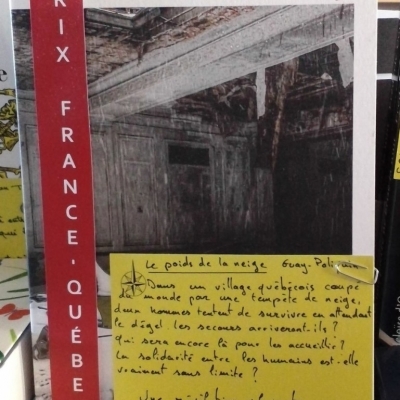 RIX FRANCE-QUÉBE
Le poids de la neige Guay-Poliquin
Dans un village québécois coupé
du monde par une tempête de neige,
deux hommes tentent de survivre en attendant
le dégel. Les secours arriveront-ils ?
Qui sera encore là pour les accueillir ?
La solidarité entre les humains est-elle
vraiment sans limite ?